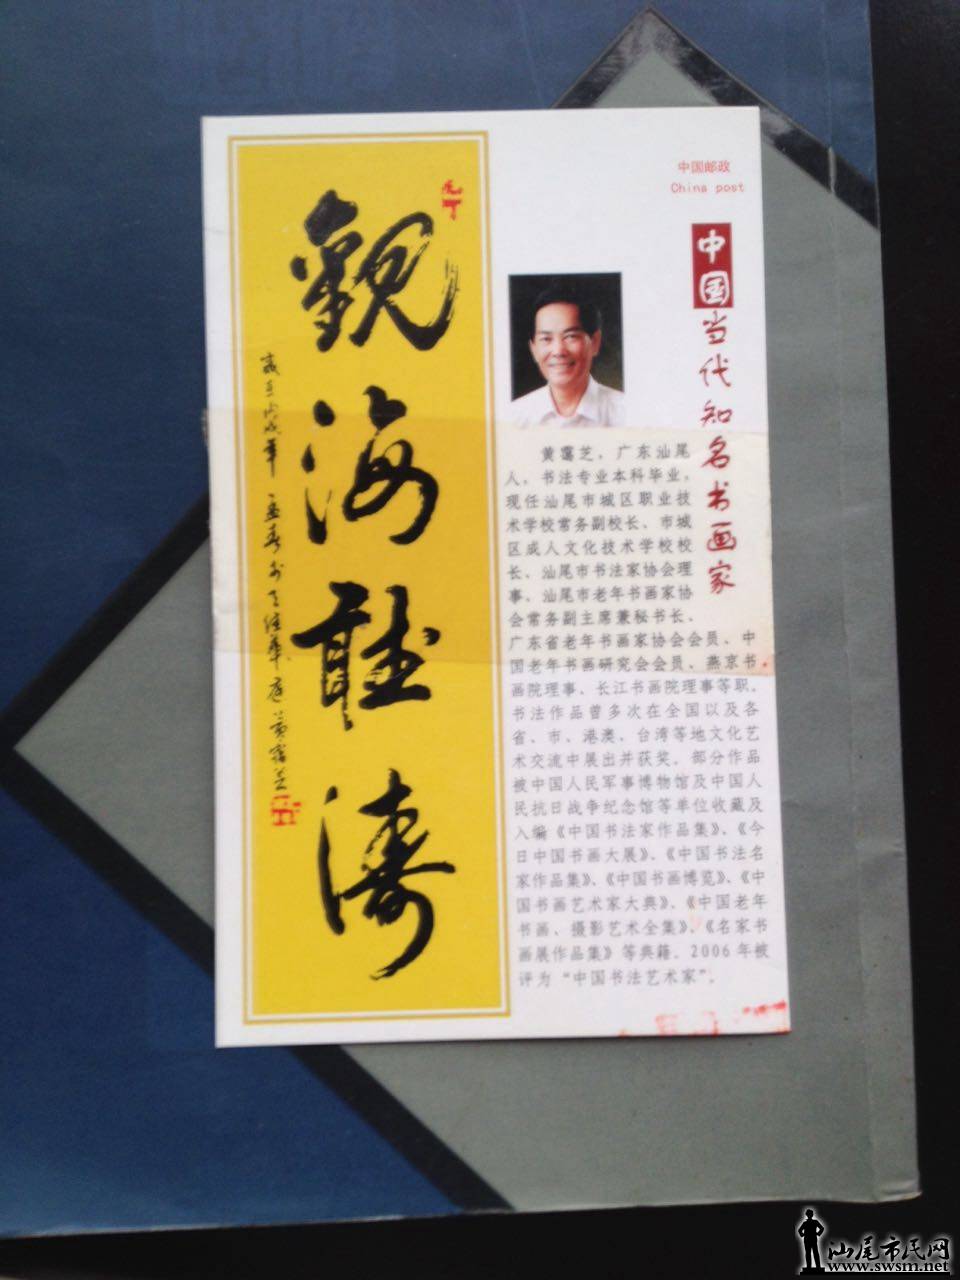 中国邮政
China post
中国当代知名书画家
觀海聽濤
黄霭芝，广东汕尾
人，书法专业本科毕业，
现任汕尾市城区职业技
术学校常务副校长、市城
区成人文化技术学校校
长、汕尾市书法家协会理
事、汕尾市老年书画家协
会常务副主席兼秘书长、
广东省老年书画家协会会员、中
国老年书画研究会会员、燕京书
画院理事、长江书画院理事等职。
书法作品曾多次在全国以及各
省、市、港澳、台湾等地文化艺
术交流中展出并获奖。部分作品
被中国人民军事博物馆及中国人
民抗日战争纪念馆等单位收藏及
入编《中国书法家作品集》、《今
日中国书画大展》、《中国书法名
家作品集》、《中国书画博览》、《中
国书画艺术家大典》、《中国老年
书画、摄影艺术全集》、《名家书
画展作品集》等典籍。2006年被
评为“中国书法艺术家”。
汕尾市民网
www.swsm.net